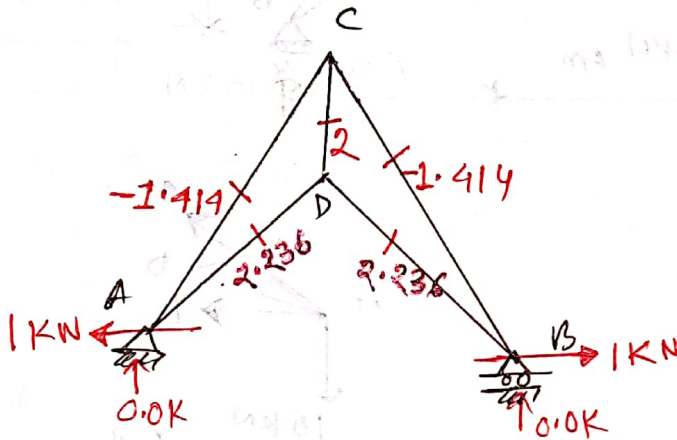 C
2
-1.414
-1.414
D
2.236
2.236
A
1 KN
B
1 KN
0.0K
0.0K